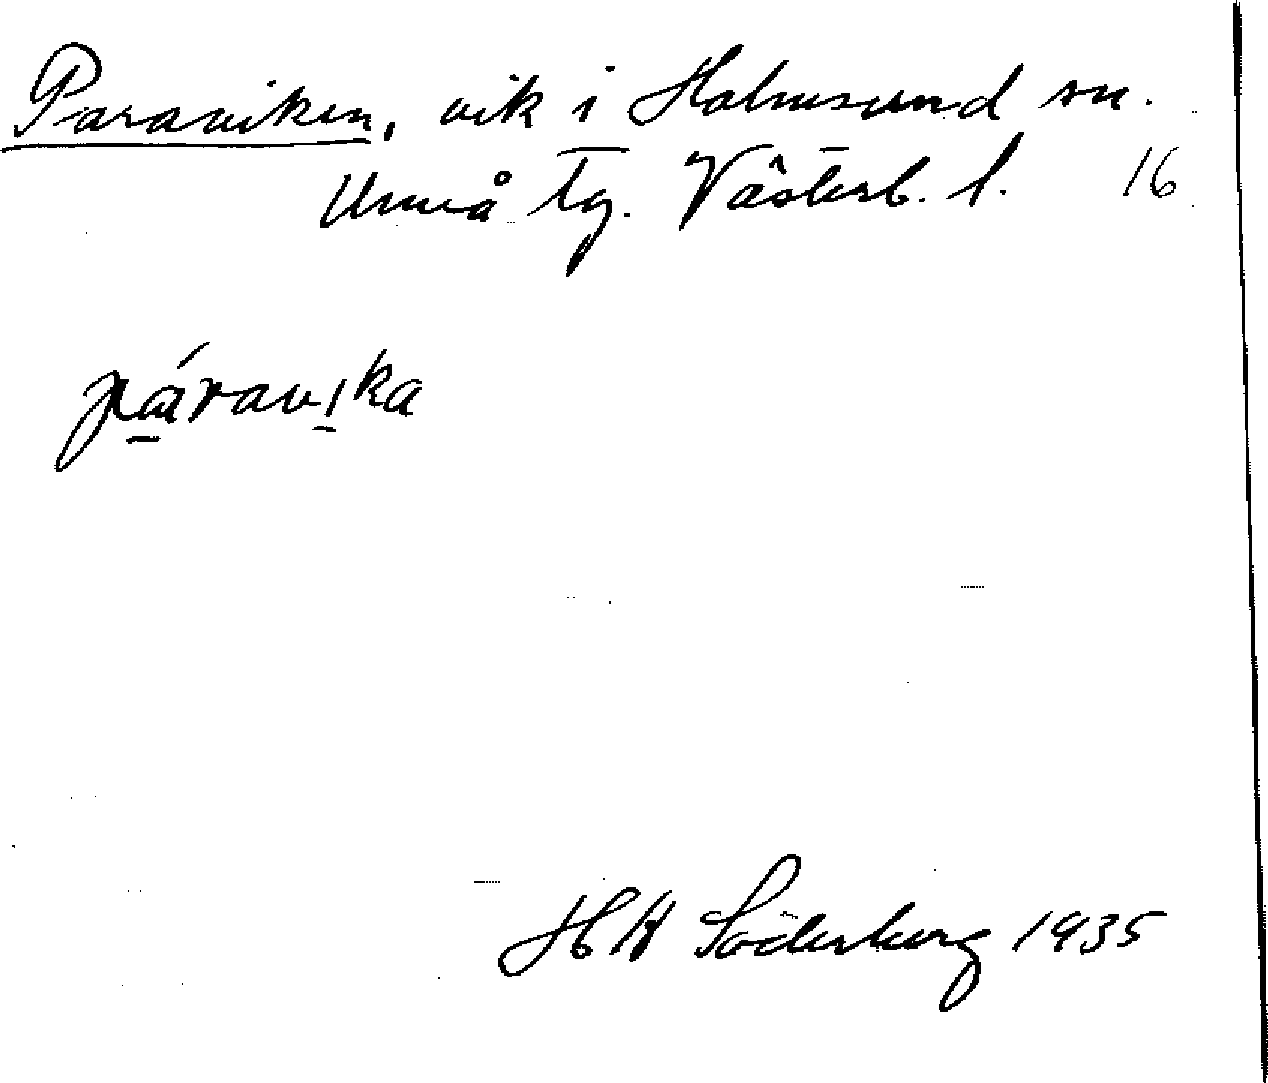 Paraviken, vik i Holmsund sn.
Umeå tg. Västerb. l. 16
páravika
H W Söderberg 1935